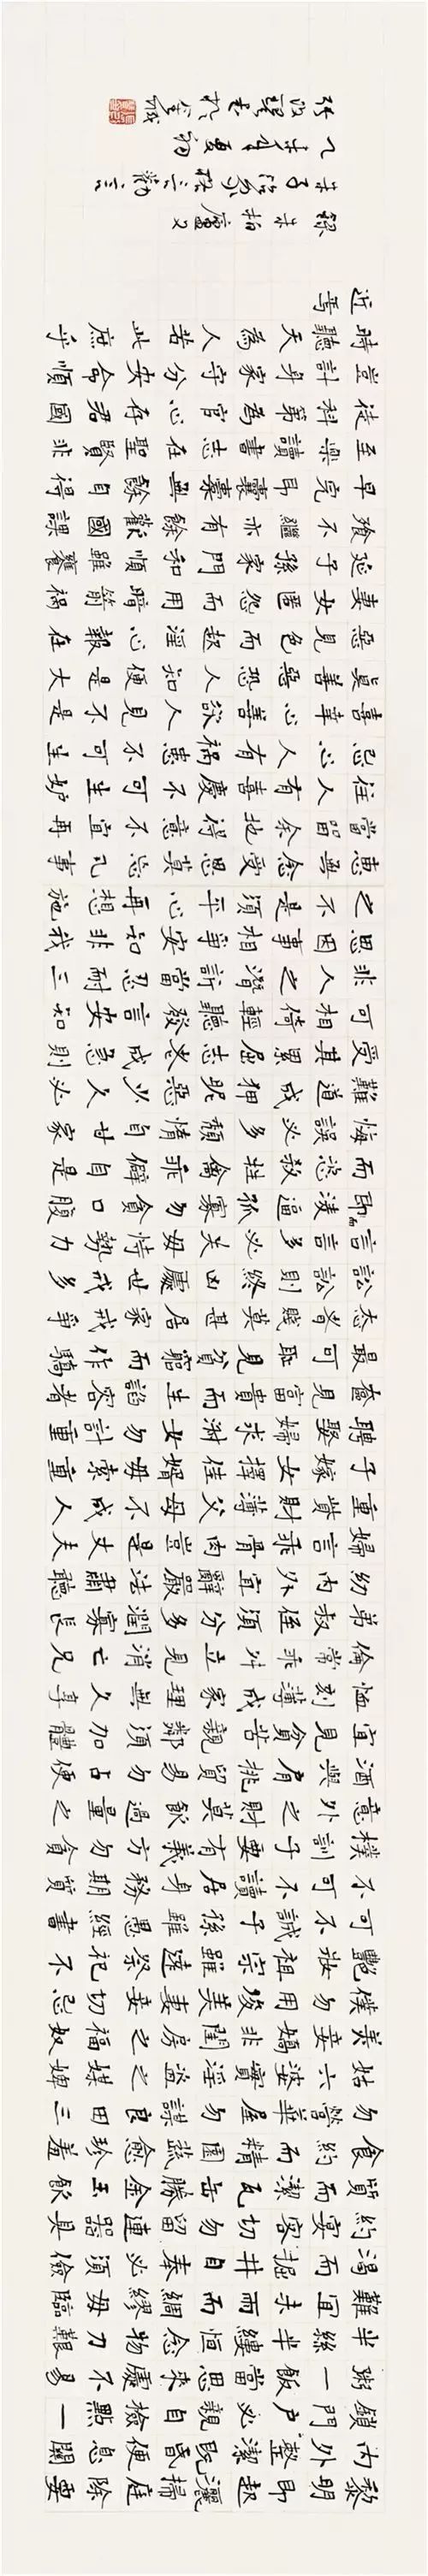 黎明即起灑掃庭除要
內外整潔既昏便息關
鎖門戶必親自檢點一
粥一飯當思來處不易
半絲半縷恒念物力艱
難宜未雨而綢繆毋臨
渴而掘井自奉必須儉
約宴客切勿留連器具
質而潔瓦缶勝金玉飲
食約而精園蔬愈珍羞
勿營華屋勿謀良田三
姑六婆實淫盜之媒婢
美妾嬌非閨房之福奴
僕勿用俊美妻妾切忌
艷妝祖宗雖遠祭祀不
可不誠子孫雖愚經書
不可不讀居身務期質
樸訓子要有義方勿貪
意外之財莫飲過量之
酒與肩挑貿易勿占便
宜見貧苦親鄰須加體
恤刻薄成家理無久享
倫常乖舛立見消亡兄
弟叔侄須分多潤寡長
幼內外宜辭嚴法肅聽
婦言乖骨肉豈是丈夫
重貲財薄父母不成人
子嫁女擇佳婿毋索重
聘娶婦求淑女勿計重
奩見富貴而生諂容者
最可恥見貧窮而作驕
態者賤莫甚居家戒爭
訟訟則終凶處世戒多
言言多必失毋恃勢力
而凌逼孤寡勿貪口腹
而恣殺牲禽乖僻自是
悔誤必多頹惰自甘家
難道成狎昵惡少久必
受其累屈志老成急則
可相倚輕聽發言安知
非人之潛訴當忍耐三
思因事相爭安知非我
之不是須平心再想施
惠無念受恩莫忘凡事
當留余地得意不宜再
往人有喜慶不可生妒
忌心人有禍患不可生
喜幸心善欲人見不是
真善惡恐人知便是大
惡見色而起淫心報在
妻女匿怨而用暗箭禍
延子孫家門和順雖饔
飧不繼亦有餘歡國課
早完即囊橐無餘自得
至樂讀書志在聖賢非
徒科第為官心存君國
豈計身家守分安命順
時聽天為人若此庶乎
近焉
錄朱柏廬又
朱子治家格言勸言
乙未年夏初
張改琴書於金城